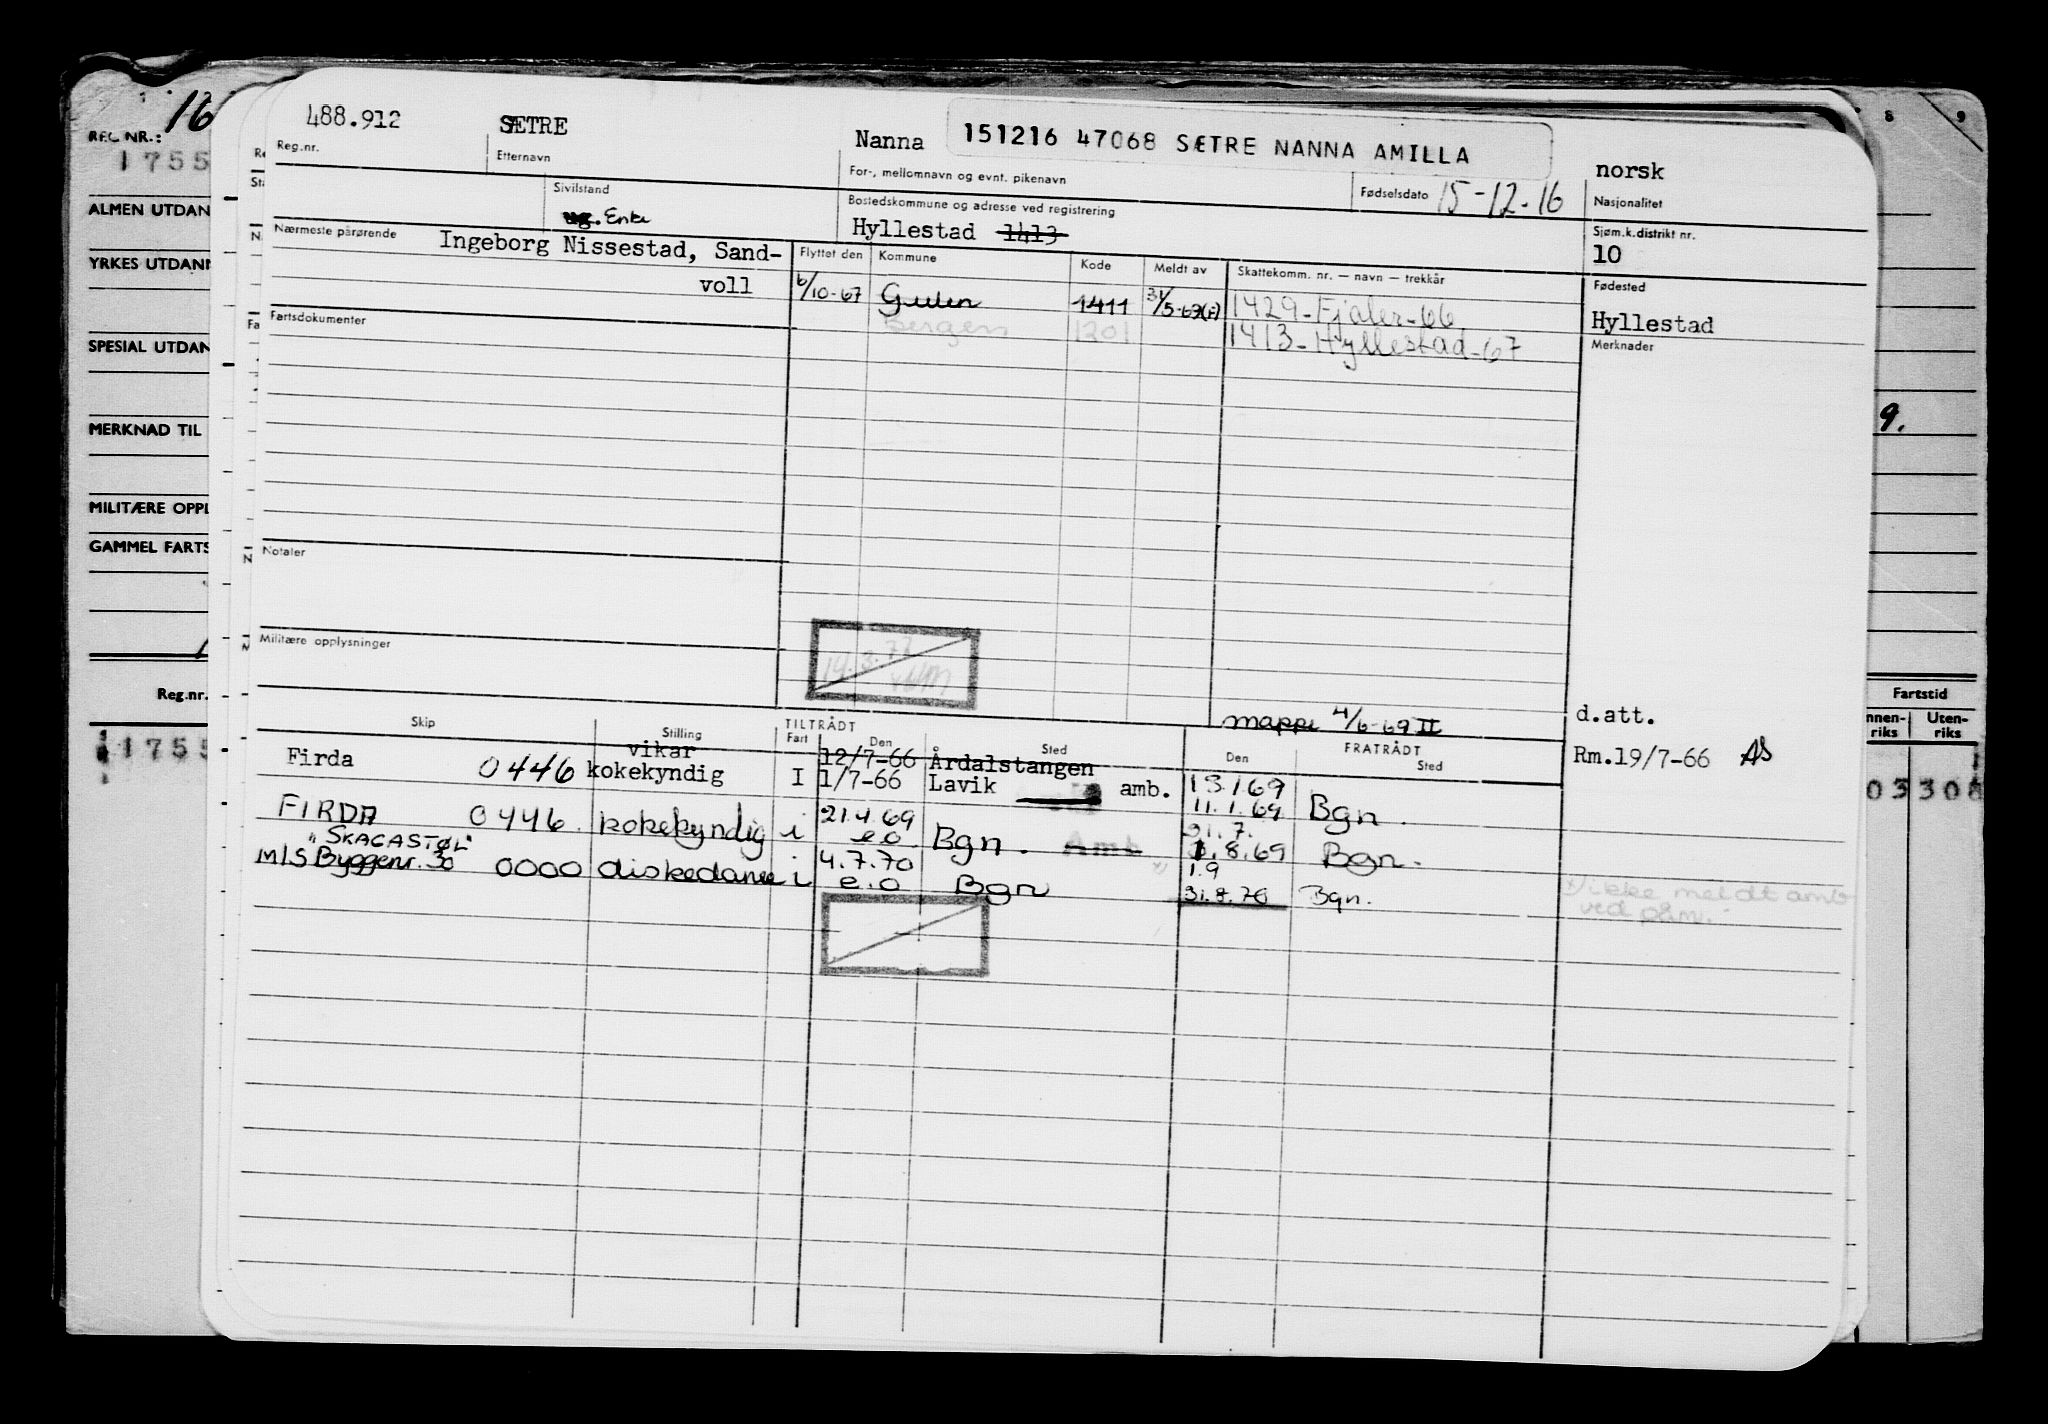 488.912
SÆTRE
Nanna
151216 47068 SÆTRE NANNA AMILLA
norsk
Reg.nr.
Etternavn
For-, mellomnavn og evnt. pikenavn
Fødselsdato 15-12-16
Nasjonalitet
Sivilstand
ug. Enke
Bostedskommune og adresse ved registrering
Hyllestad 1413
Sjøm.k.distrikt nr.
10
Nærmeste pårørende
Ingeborg Nissestad, Sand-
voll
Flyttet den
Kommune
Kode
Meldt av
Skattekomm. nr. — navn — trekkår
Fødested
Hyllestad
6/10-67 Gulen 1411 31/5-69(F) 1429-Fjaler-66
Bergen 1201 1413-Hyllestad-67
Fartsdokumenter
Merknader
Notaler
Militære opplysninger
14.3.72
mappe 4/6-69 II
d.att.
Skip
Stilling
TILTRÅDT
Fart
Den
Sted
FRATRÅDT
Den
Sted
Firda 0446 vikar kokekyndig I 12/7-66 Årdalstangen
1/7-66 Lavik amb. 13.1.69
Rm.19/7-66 AS
FIRDA 0446 kokekyndig i 21.4.69 e.o Bgn. Amb
11.1.69 Bgn.
31.7.
1.8.69 Bgn.
"SKAGASTØL"
M/S Byggenr. 30 0000 i 4.7.70 e.o Bgn
1.9
31.8.70 Bgn.
x) ikke meldt amb
ved påm.
REG NR.:
16
1755
ALMEN UTDAN
YRKES UTDANN
SPESIAL UTDAN
MERKNAD TIL
MILITÆRE OPPL
GAMMEL FARTS
Reg.nr.
1755
8
9
9.
Fartstid
nnen-
riks
Uten-
riks
03 308